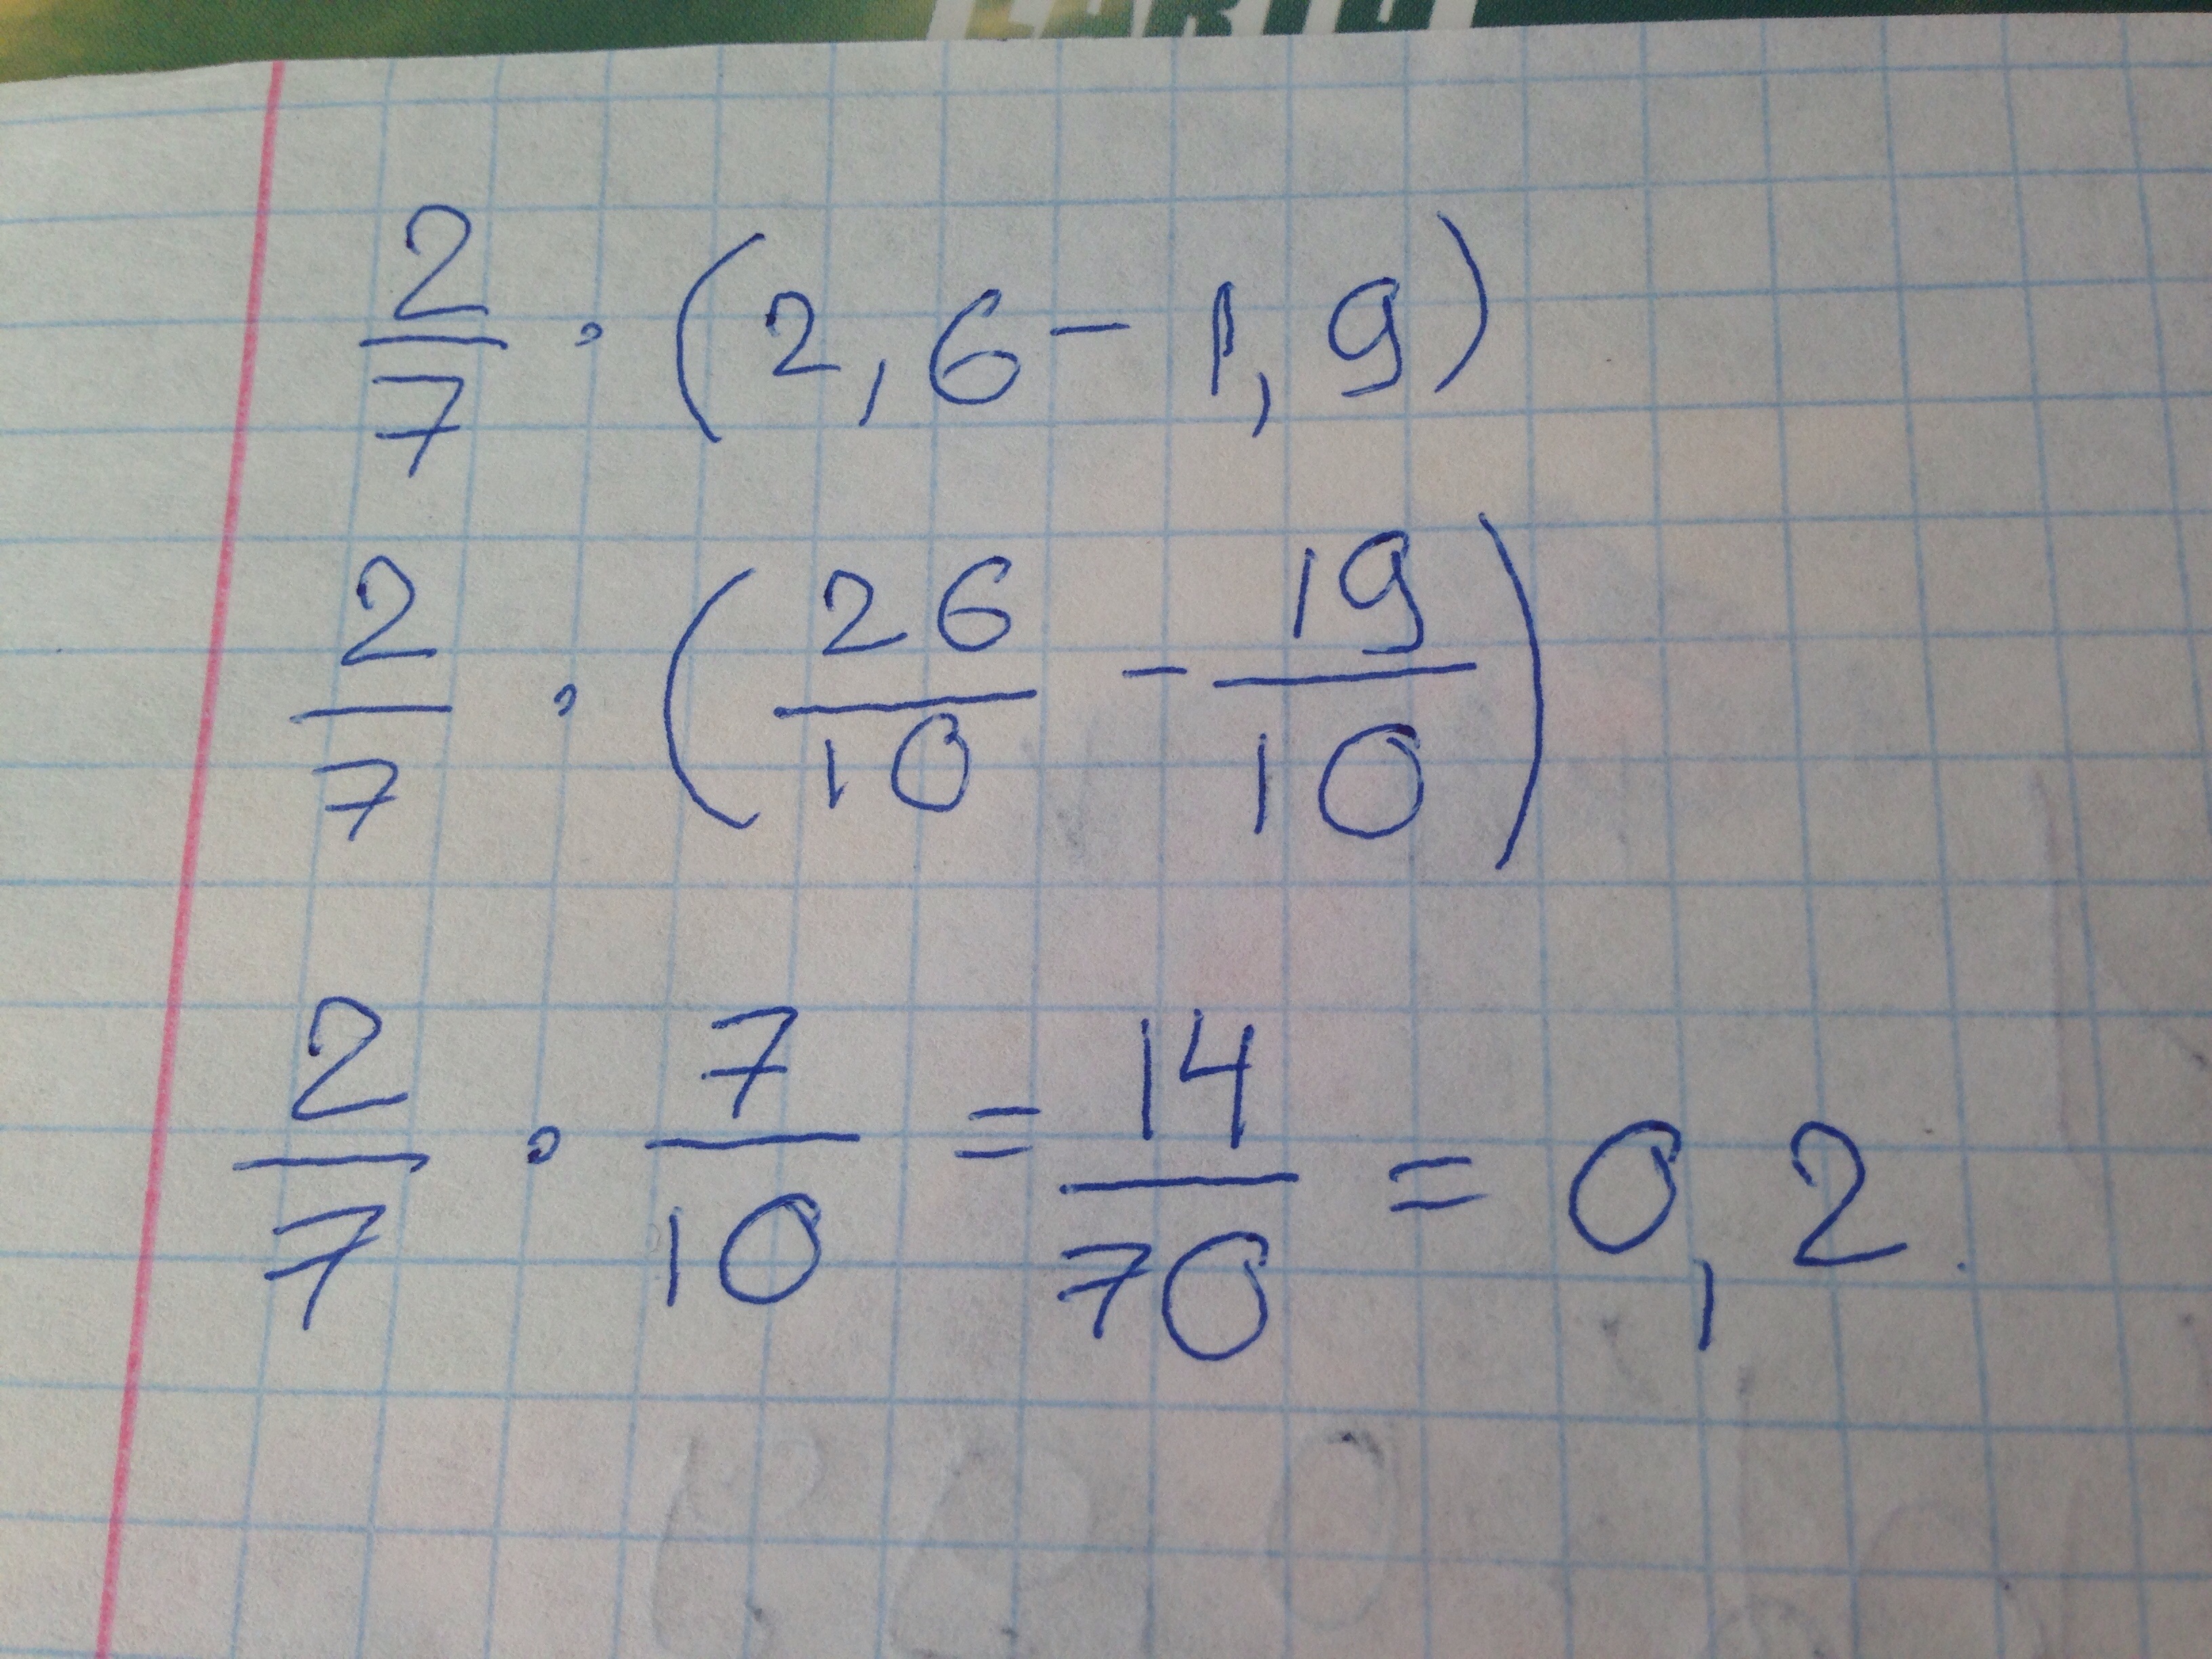 EARTH
2/7 · (2,6 - 1,9)
2/7 · (26/10 - 19/10)
2/7 · 7/10 = 14/70 = 0,2.